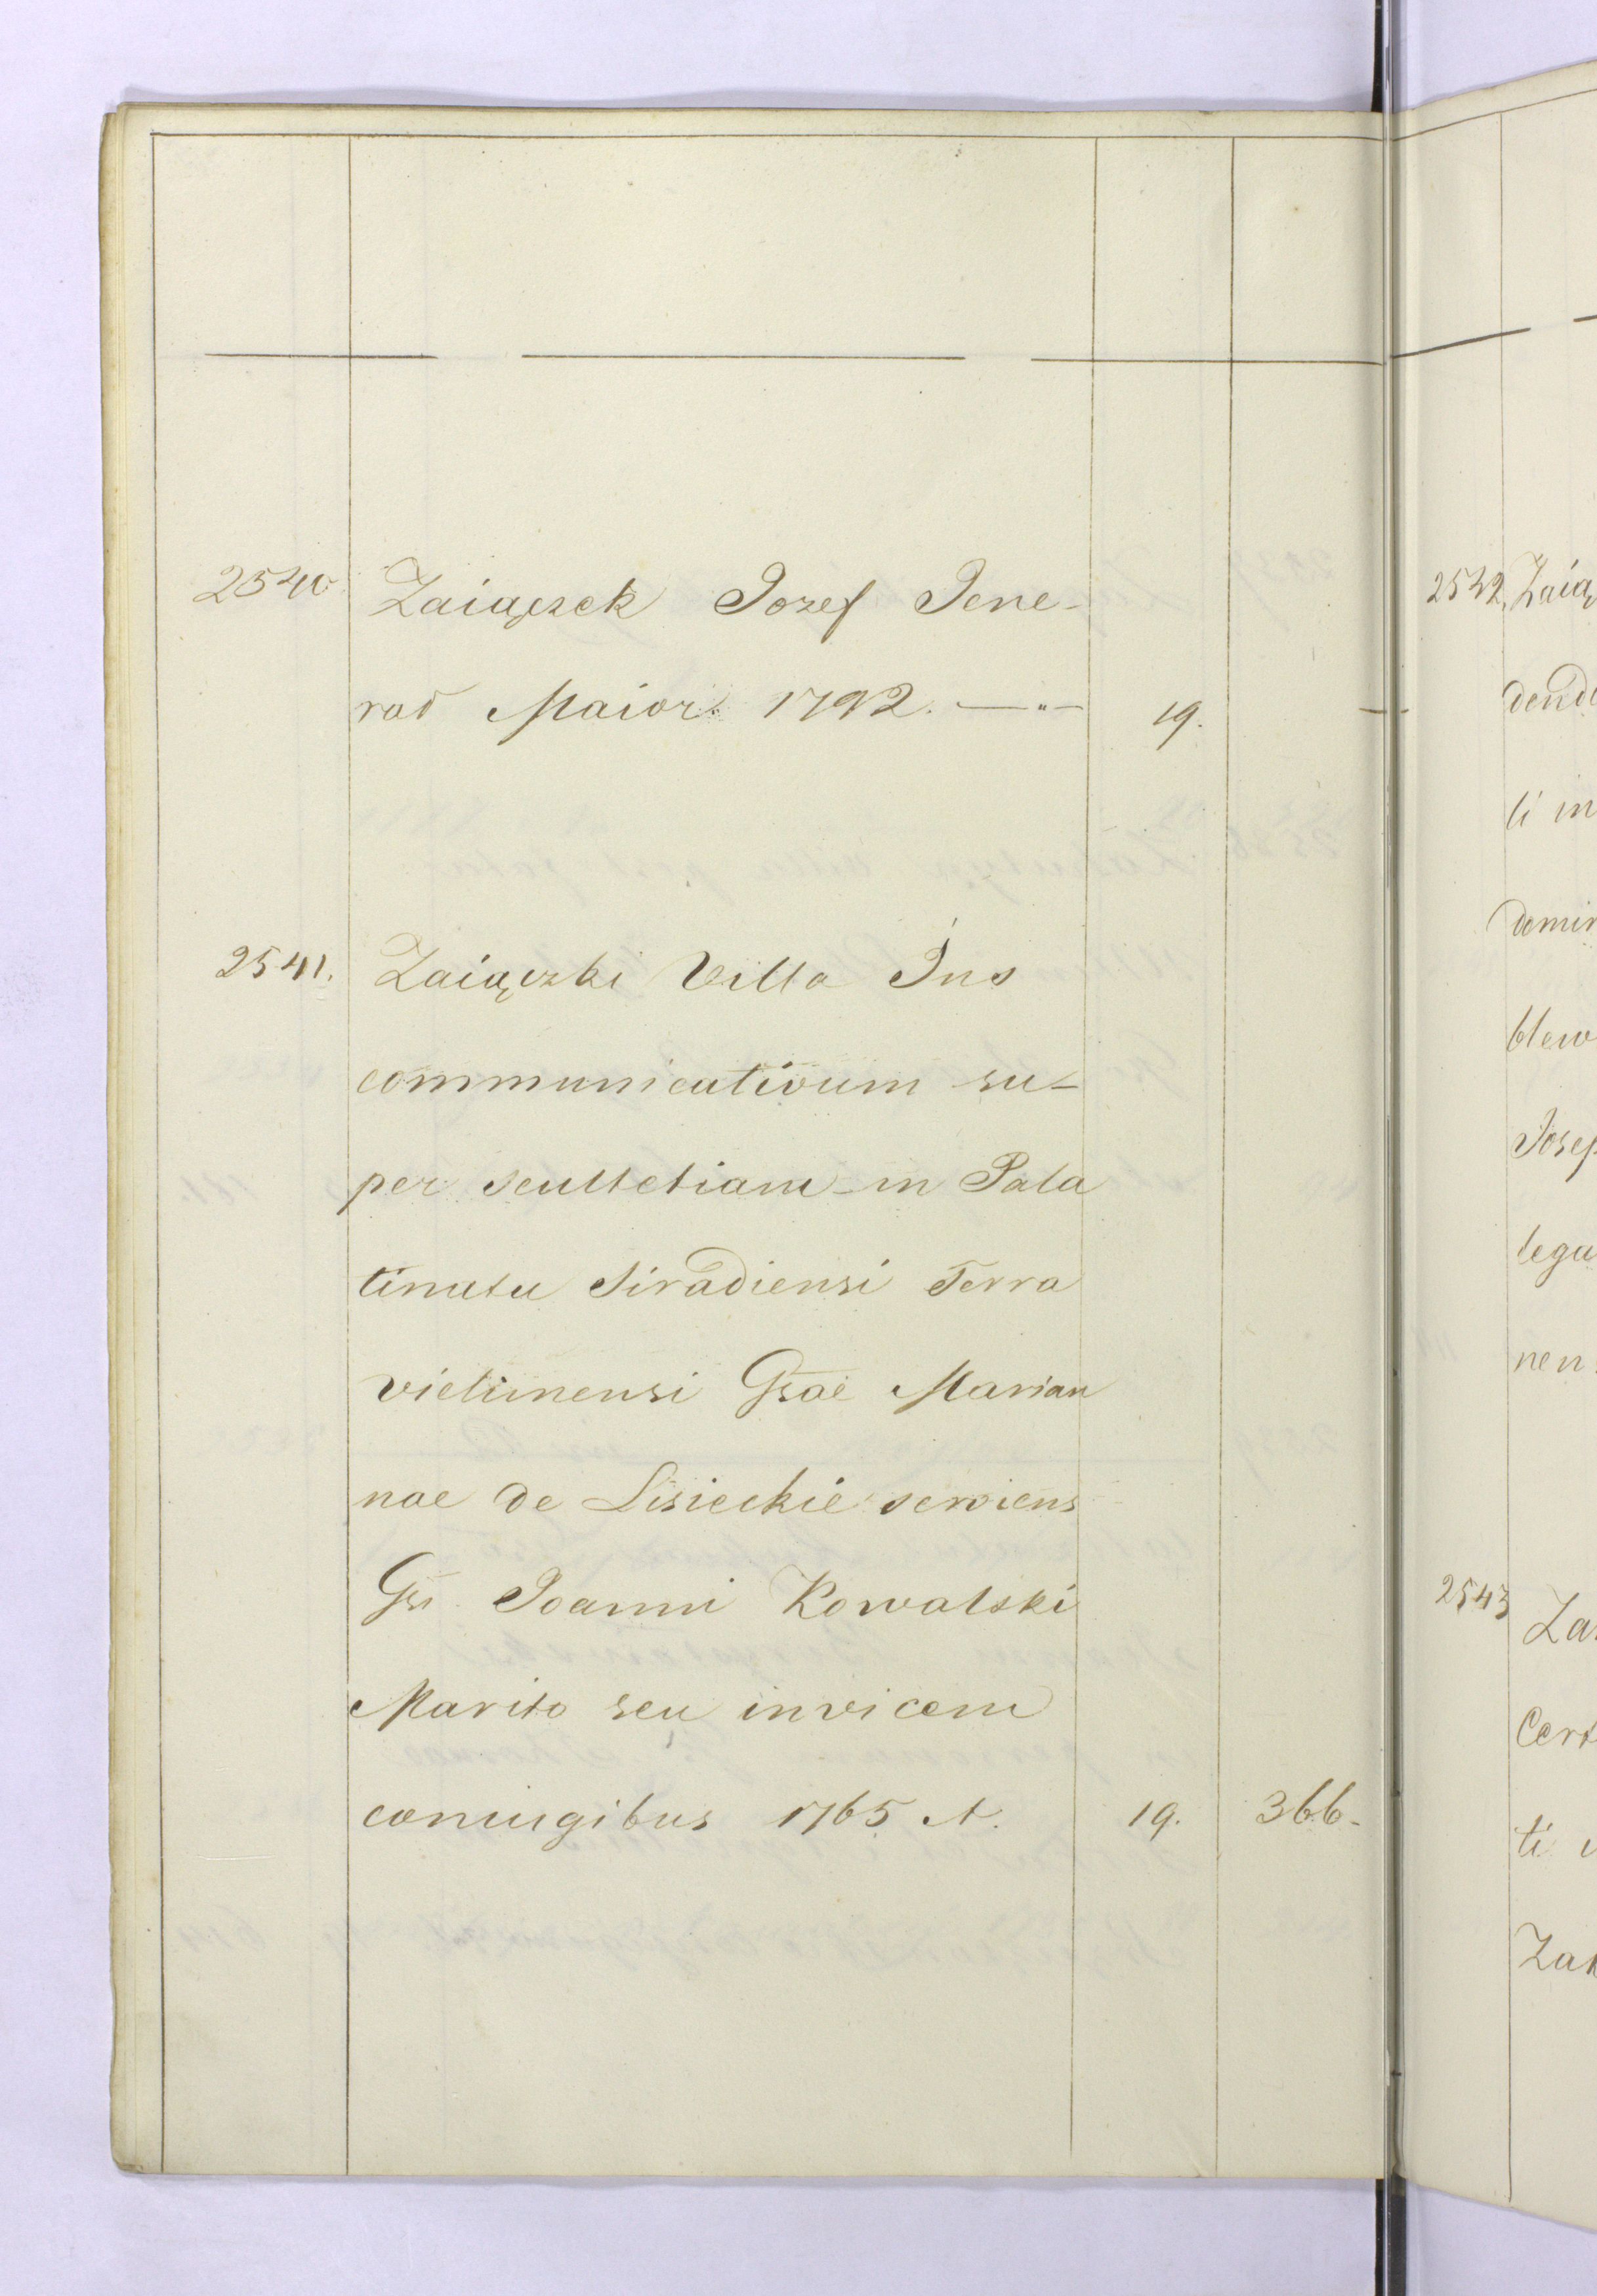 2540 Zaiączek Jozef Jene-
rał Maior. 1792. — 19.
2541. Zaiączki Villa Jus
communicativum su-
per scultetiam in Pala
tinatu Siradiensi Terra
vielunensi Gsae Marian
nae de Lisieckie serviens
Gsi Joanni Kowalski
Marito seu invicem
coniugibus 1765 A. 19. 366.
2542. Zaią
dend
li in
domin
blew
Josep
lega
nen
2543 Za
Cert
ti
Zak